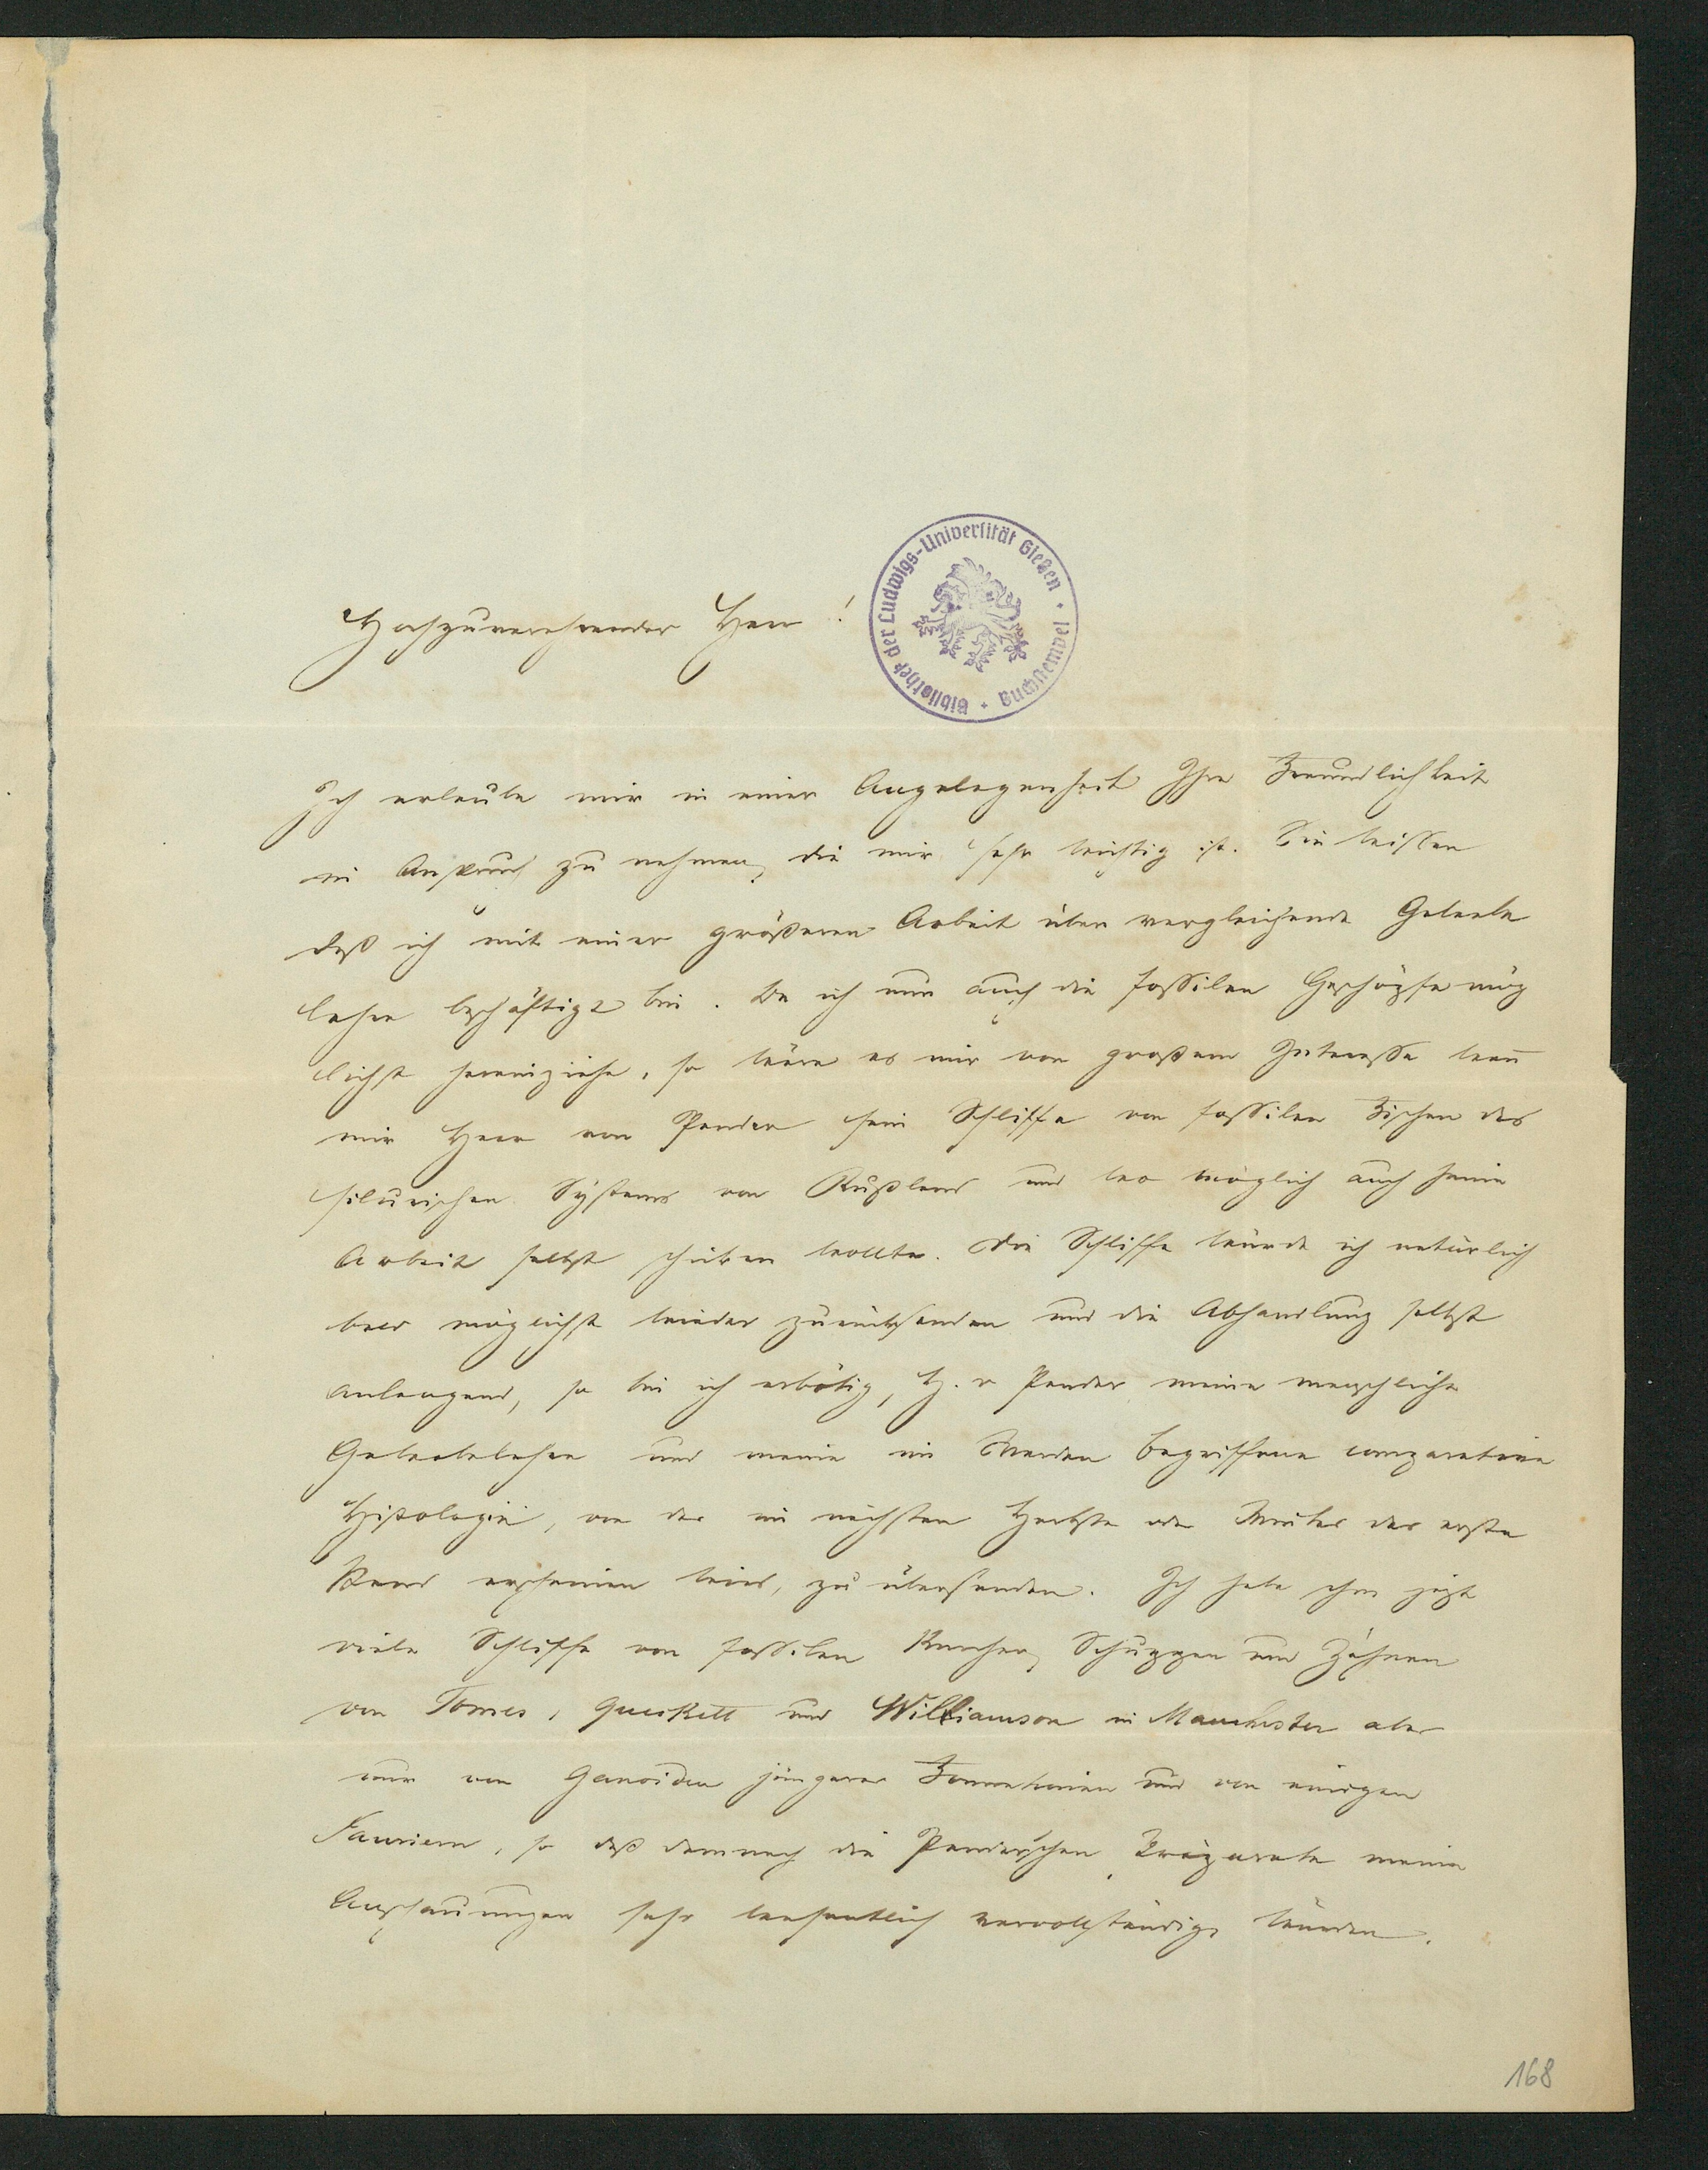 Hochzuverehrender Herr!
Bibliothek der Ludwigs-Universität Gießen · Buchstempel ·
Ich erlaube mir in einer Angelegenheit Ihre Freundlichkeit
in Anspruch zu nehmen, die mir sehr wichtig ist. Sie wissen
daß ich mit einer größeren Arbeit über vergleichende Gewebe
lehre beschäftigt bin. Da ich nun auch die fossilen Geschöpfe mög
lichst hereinziehe, so wäre es mir von großem Interesse wenn
mir Herr von Pander sein Schliffe von fossilen Fischen des
silurischen Systems von Rußland und wo möglich auch seine
Arbeit selbst schicken wollte. Die Schliffe würde ich natürlich
bald möglichst wieder zurücksenden und die Abhandlung selbst
anlangend, so bin ich erbötig, H. v Pander meine menschliche
Gewebelehre und meine im Werden begriffene comparative
Histologie, von der im nächsten Herbste oder Winter der erste
Band erscheinen wird, zu übersenden. Ich habe schon jetzt
viele Schliffe von fossilen Knochen, Schuppen und Zähnen
von Tomes, Queckett und Williamson in Manchester aber
nur von Ganoiden jüngerer Formationen und von einigen
Sauriern, so daß demnach die Pander'schen Präparate meine
Anschauungen sehr wesentlich vervollständigen würden.
168